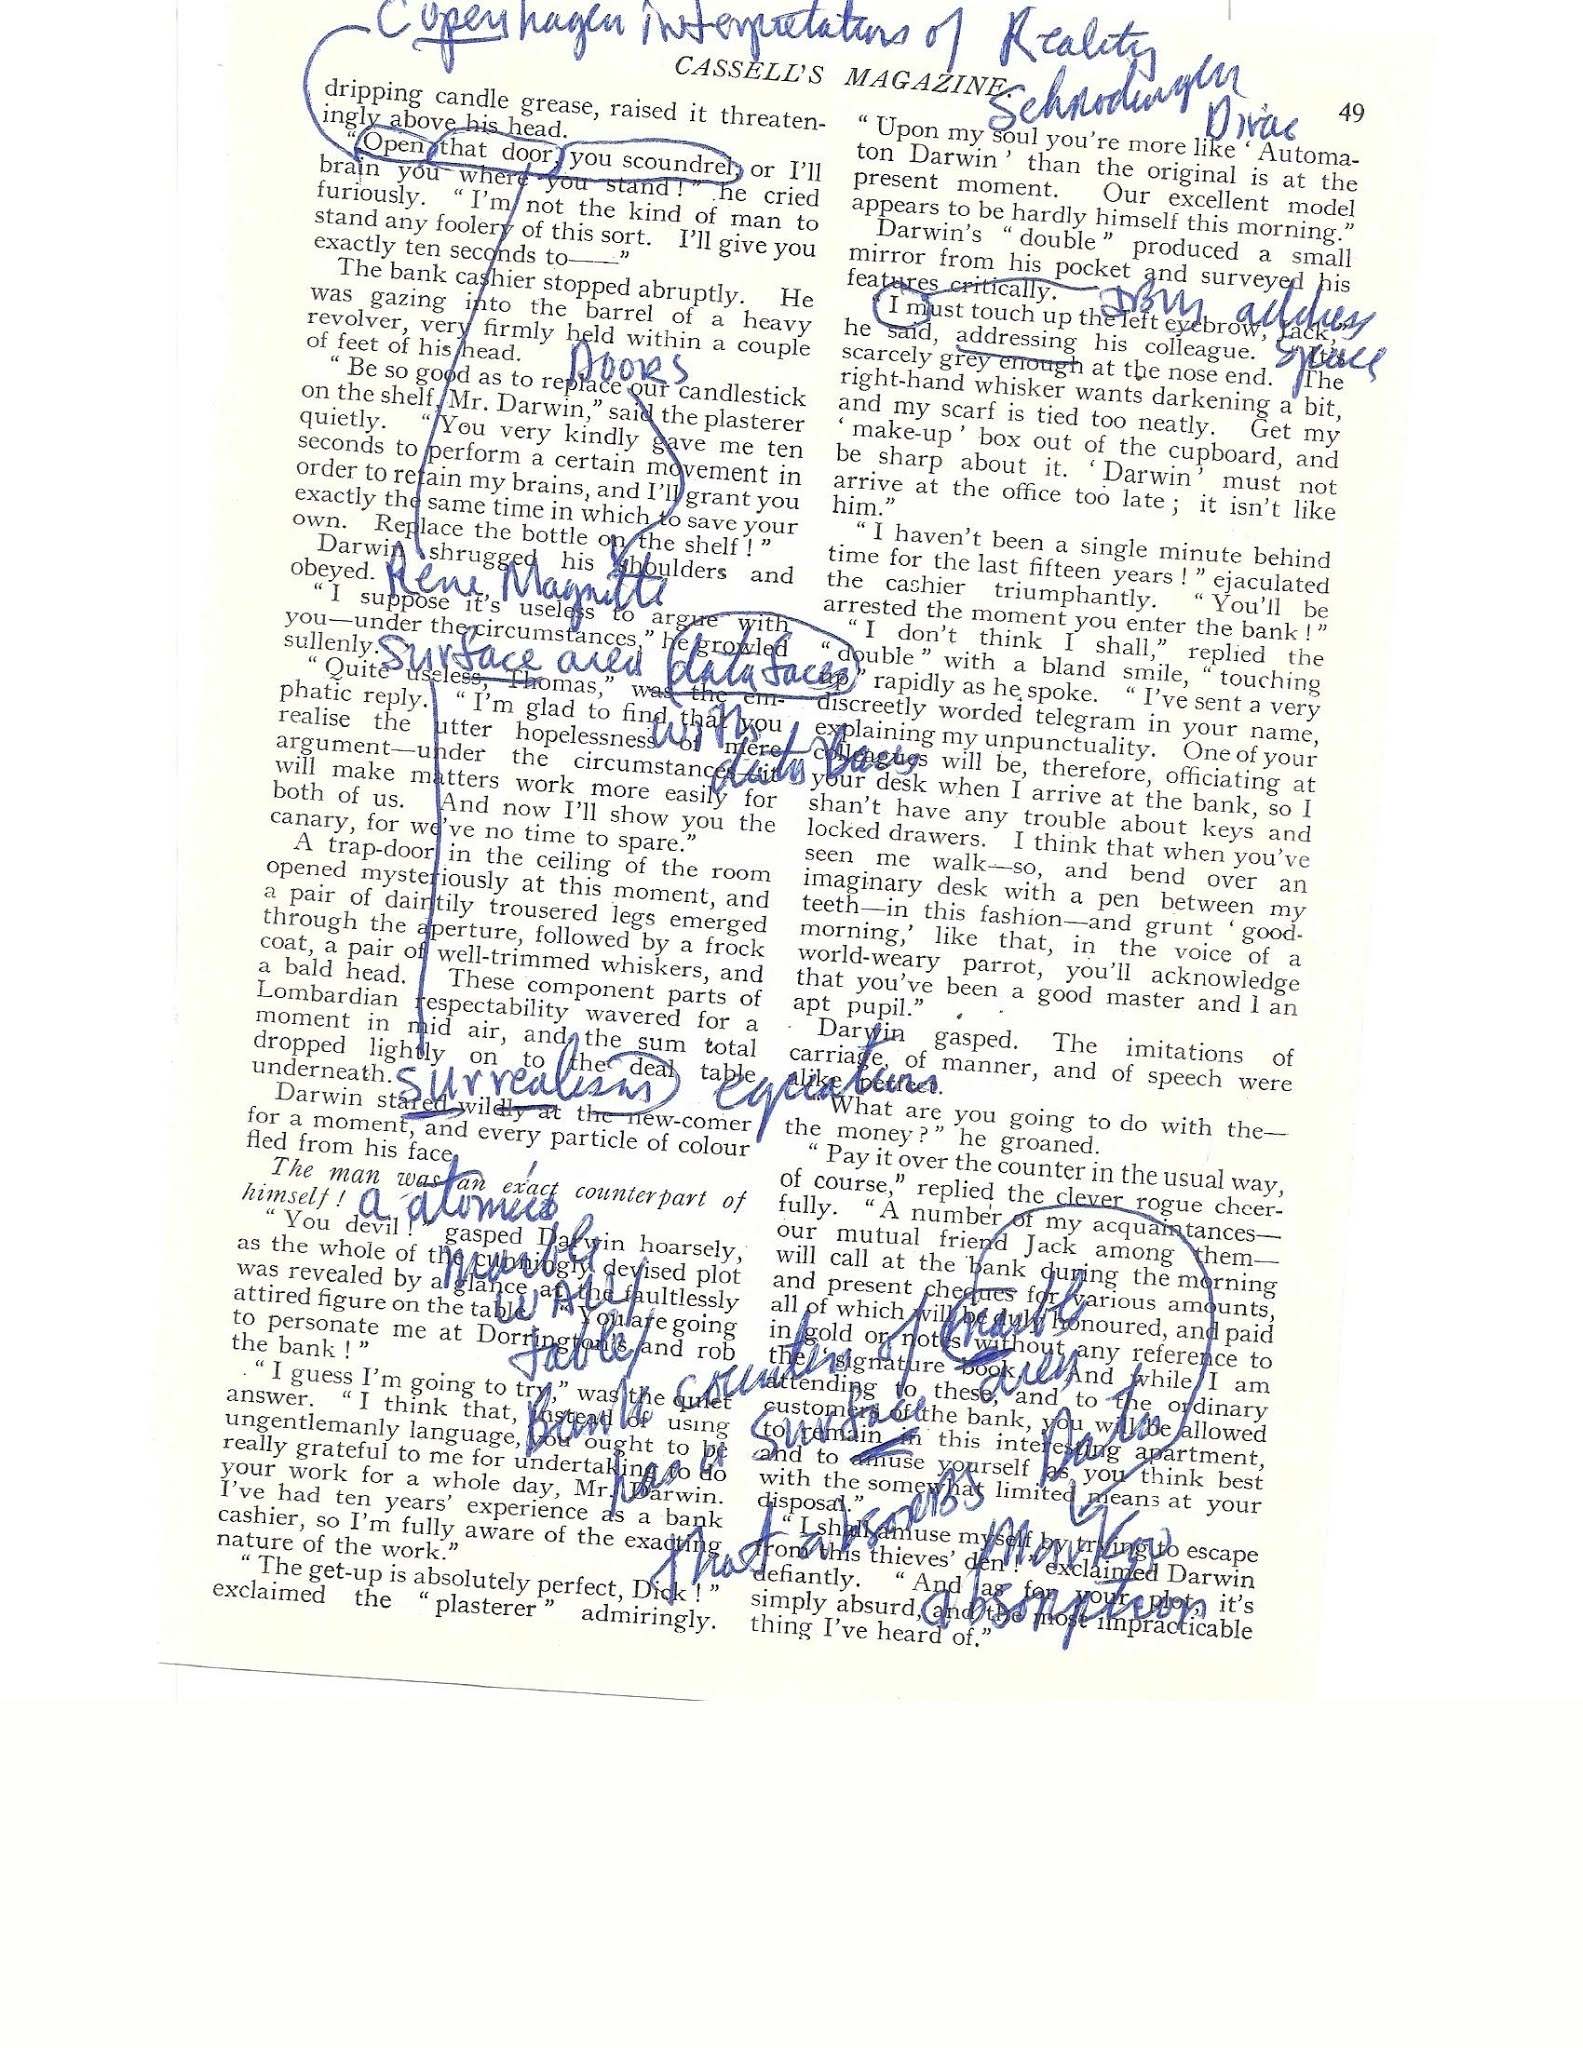 Copenhagen interpretations of Reality
CASSELL'S MAGAZINE.
49
Schrodinger
Dirac
dripping candle grease, raised it threaten-
ingly above his head.
"Open that door, you scoundrel, or I'll
brain you where you stand!" he cried
furiously. "I'm not the kind of man to
stand any foolery of this sort. I'll give you
exactly ten seconds to——"
The bank cashier stopped abruptly. He
was gazing into the barrel of a heavy
revolver, very firmly held within a couple
of feet of his head.
Doors
"Be so good as to replace our candlestick
on the shelf, Mr. Darwin," said the plasterer
quietly. "You very kindly gave me ten
seconds to perform a certain movement in
order to retain my brains, and I'll grant you
exactly the same time in which to save your
own. Replace the bottle on the shelf!"
Darwin shrugged his shoulders and
obeyed.
Rene Magritte
"I suppose it's useless to argue with
you—under the circumstances," he growled
sullenly.
surface area data faces
"Quite useless, Thomas," was the em-
phatic reply. "I'm glad to find that you
realise the utter hopelessness of mere
argument—under the circumstances—it
will make matters work more easily for
both of us. And now I'll show you the
canary, for we've no time to spare."
with
data Bases
A trap-door in the ceiling of the room
opened mysteriously at this moment, and
a pair of daintily trousered legs emerged
through the aperture, followed by a frock
coat, a pair of well-trimmed whiskers, and
a bald head. These component parts of
Lombardian respectability wavered for a
moment in mid air, and the sum total
dropped lightly on to the deal table
underneath.
surrealism equations
Darwin stared wildly at the new-comer
for a moment, and every particle of colour
fled from his face.
The man was an exact counterpart of
himself!
a atomic
marble
WALL
table
"You devil!" gasped Darwin hoarsely,
as the whole of the cunningly devised plot
was revealed by a glance at the faultlessly
attired figure on the table. "You are going
to personate me at Dorrington's and rob
the bank!"
"I guess I'm going to try," was the quiet
answer. "I think that, instead of using
ungentlemanly language, you ought to be
really grateful to me for undertaking to do
your work for a whole day, Mr. Darwin.
I've had ten years' experience as a bank
cashier, so I'm fully aware of the exacting
nature of the work."
"The get-up is absolutely perfect, Dick!"
exclaimed the "plasterer" admiringly.
"Upon my soul you're more like 'Automa-
ton Darwin' than the original is at the
present moment. Our excellent model
appears to be hardly himself this morning."
Darwin's "double" produced a small
mirror from his pocket and surveyed his
features critically.
IBM address
space
"I must touch up the left eyebrow, Jack,"
he said, addressing his colleague. "It's
scarcely grey enough at the nose end. The
right-hand whisker wants darkening a bit,
and my scarf is tied too neatly. Get my
'make-up' box out of the cupboard, and
be sharp about it. 'Darwin' must not
arrive at the office too late; it isn't like
him."
"I haven't been a single minute behind
time for the last fifteen years!" ejaculated
the cashier triumphantly. "You'll be
arrested the moment you enter the bank!"
"I don't think I shall," replied the
"double" with a bland smile, "touching
up" rapidly as he spoke. "I've sent a very
discreetly worded telegram in your name,
explaining my unpunctuality. One of your
colleagues will be, therefore, officiating at
your desk when I arrive at the bank, so I
shan't have any trouble about keys and
locked drawers. I think that when you've
seen me walk—so, and bend over an
imaginary desk with a pen between my
teeth—in this fashion—and grunt 'good-
morning,' like that, in the voice of a
world-weary parrot, you'll acknowledge
that you've been a good master and I an
apt pupil."
Darwin gasped. The imitations of
carriage, of manner, and of speech were
alike perfect.
"What are you going to do with the—
the money?" he groaned.
"Pay it over the counter in the usual way,
of course," replied the clever rogue cheer-
fully. "A number of my acquaintances—
our mutual friend Jack among them—
will call at the bank during the morning
and present cheques for various amounts,
all of which will be duly honoured, and paid
in gold or notes without any reference to
the signature book. And while I am
attending to these, and to the ordinary
customers of the bank, you will be allowed
to remain in this interesting apartment,
and to amuse yourself as you think best
with the somewhat limited means at your
disposal."
Bank counter of marble
has a surface area
that absorbs Data
Markov
absorption
"I shall amuse myself by trying to escape
from this thieves' den!" exclaimed Darwin
defiantly. "And as for your plot, it's
simply absurd, and the most impracticable
thing I've heard of."